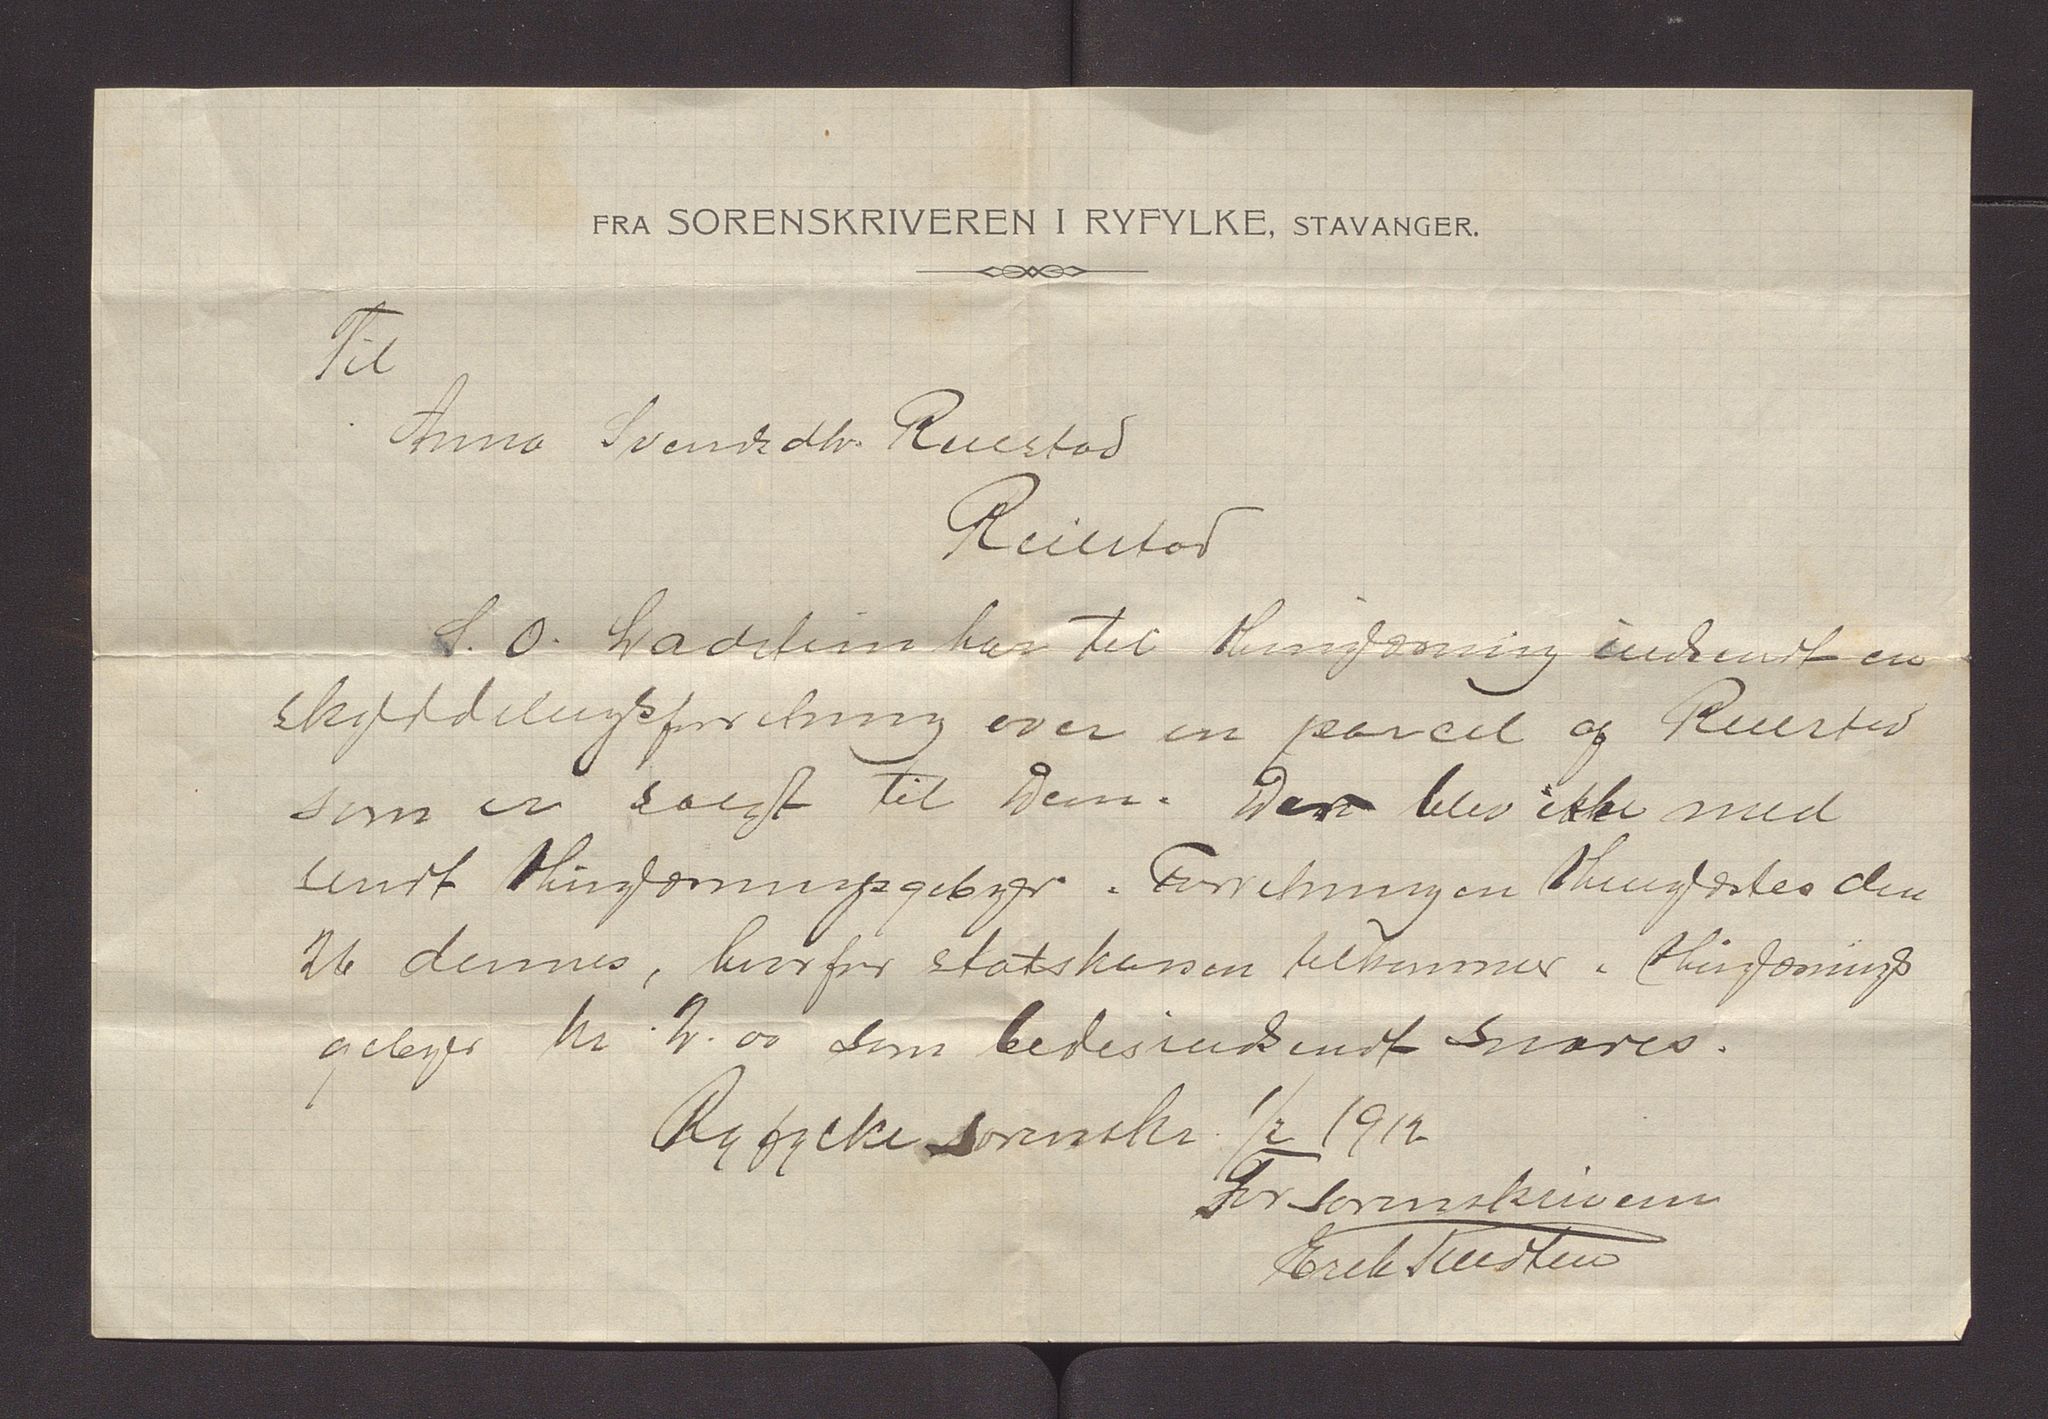 FRA SORENSKRIVEREN I RYFYLKE, STAVANGER.
Til
Anna Svendsdtr. Reiestad
Reiestad
S. O. Ladstein har til thinglæsning indsendt en
skylddelingsforretning over en parcel af Reiestad
som er solgt til Dem. Der blev ikke med
sendt thinglæsningsgebyr. Forretningen thinglæstes den
26 dennes, hvorfor statskassen tilkommer. thinglæsnings
gebyr kr. 2.00 som bedes indsendt snares.
Ryfylke sorenskr. 1/2 1912
For sorenskriveren
Erik